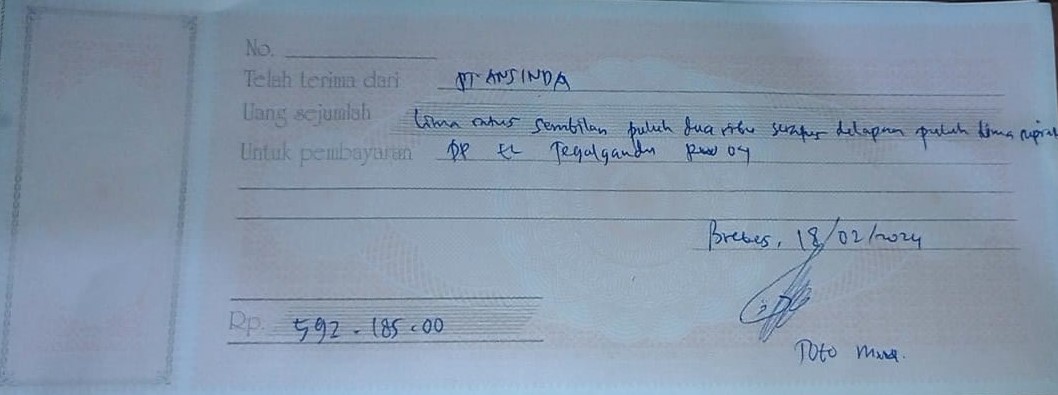 No.
Telah terima dari PT ANSINDA
Uang sejumlah Lima ratus sembilan puluh dua ribu seratus delapan puluh lima rupiah
Untuk pembayaran DP EL Tegalgandu 04
Brebes, 18/02/2024
Rp. 592.185.00
Toto